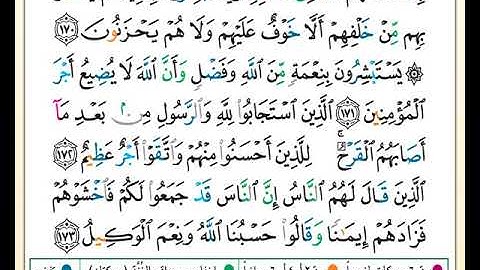 بِهِم مِّنْ خَلْفِهِمْ أَلَّا خَوْفٌ عَلَيْهِمْ وَلَا هُمْ يَحْزَنُونَ ١٧٠
۞ يَسْتَبْشِرُونَ بِنِعْمَةٍ مِّنَ اللَّهِ وَفَضْلٍ وَأَنَّ اللَّهَ لَا يُضِيعُ أَجْرَ
الْمُؤْمِنِينَ ١٧١ الَّذِينَ اسْتَجَابُوا لِلَّهِ وَالرَّسُولِ مِنۢ بَعْدِ مَآ
أَصَابَهُمُ الْقَرْحُ ۚ لِلَّذِينَ أَحْسَنُوا مِنْهُمْ وَاتَّقَوْا أَجْرٌ عَظِيمٌ ١٧٢
الَّذِينَ قَالَ لَهُمُ النَّاسُ إِنَّ النَّاسَ قَدْ جَمَعُوا لَكُمْ فَاخْشَوْهُمْ
فَزَادَهُمْ إِيمَٰنًا وَقَالُوا حَسْبُنَا اللَّهُ وَنِعْمَ الْوَكِيلُ ١٧٣